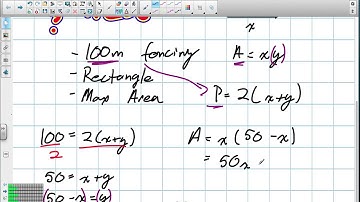 x
- 100m fencing
A = x(y)
- Rectangle
- Max Area
P = 2(x+y)
100 = 2(x+y)
2
A = x(50 - x)
= 50x
50 = x+y
(50 - x) = (y)